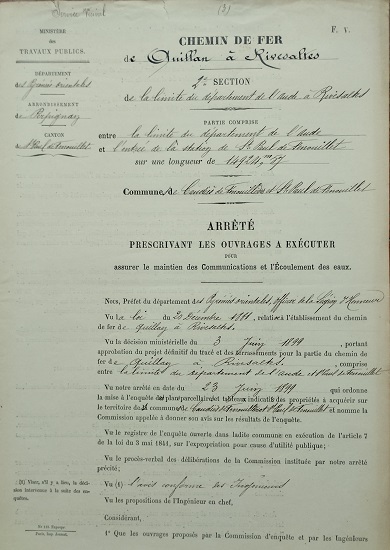 Service Vicinal
(5)
MINISTÈRE
DES
TRAVAUX PUBLICS.
DÉPARTEMENT
des Pyrénées orientales
ARRONDISSEMENT
Perpignan
CANTON
St Paul de Fenouillet
F. V.
CHEMIN DE FER
de Quillan à Rivesaltes
2e SECTION
de la limite du département de l'Aude à Rivesaltes
PARTIE COMPRISE
entre la limite du département de l'Aude
et l'entrée de la station de St Paul de Fenouillet
sur une longueur de 14924,m57
Communes de Caudiès de Fenouillèdes et St Paul de Fenouillet
ARRÊTÉ
PRESCRIVANT LES OUVRAGES A EXÉCUTER
POUR
assurer le maintien des Communications et l'Écoulement des eaux.
Nous, Préfet du département des Pyrénées orientales, officier de la Légion d'Honneur
Vu la loi du 20 Décembre 1881, relative à l'établissement du chemin
de fer de Quillan à Rivesaltes
Vu la décision ministérielle du 3 Juin 1899, portant
approbation du projet définitif du tracé et des terrassements pour la partie du chemin
de fer de Quillan à Rivesaltes, comprise
entre la limite du département de l'Aude et St Paul de Fenouillet
Vu notre arrêté en date du 23 Juin 1899 qui ordonne
la mise à l'enquête du plan parcellaire et tableau indicatif des propriétés à acquérir sur
le territoire des communes de Caudiès de Fenouillèdes et St Paul de Fenouillet et nomme la
Commission appelée à donner son avis sur les résultats de l'enquête.
Vu le registre de l'enquête ouverte dans ladite commune en exécution de l'article 7
de la loi du 3 mai 1841, sur l'expropriation pour cause d'utilité publique;
Vu le procès-verbal des délibérations de la Commission instituée par notre arrêté
précité;
(1) Viser, s'il y a lieu, la déci-
sion intervenue à la suite des en-
quêtes.
Vu (1) l'avis conforme des Ingénieurs
Vu les propositions de l'Ingénieur en chef,
Considérant,
1° Que les ouvrages proposés par la Commission d'enquête et par les Ingénieurs